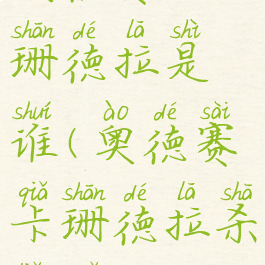 shān dé lā shì
珊德拉是
shuí ào dé sài
谁(奥德赛
qiǎ shān dé lā shā
卡珊德拉杀